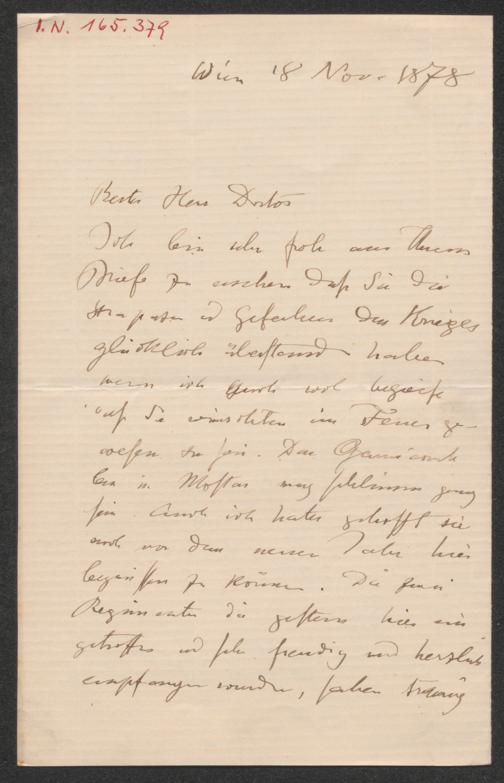 I.N. 165.379
Wien 18 Nov. 1878
Bester Herr Doctor
Ich bin sehr froh aus Ihrem
Briefe zu ersehen daß Sie die
Strapazen und Gefahren des Krieges
glücklich überstanden haben
wenn ich auch wol begreife
daß Sie wünschten im Feuer ge-
wesen zu sein. Das
in Mostar mag schlimm genug
sein. Auch ich hatte gehofft sie
noch vor dem neuen Jahr hier
begrüssen zu können. Die zwei
Regimenter die gestern hier ein
getroffen und sehr freudig und herzlich
empfangen wurden, sahen